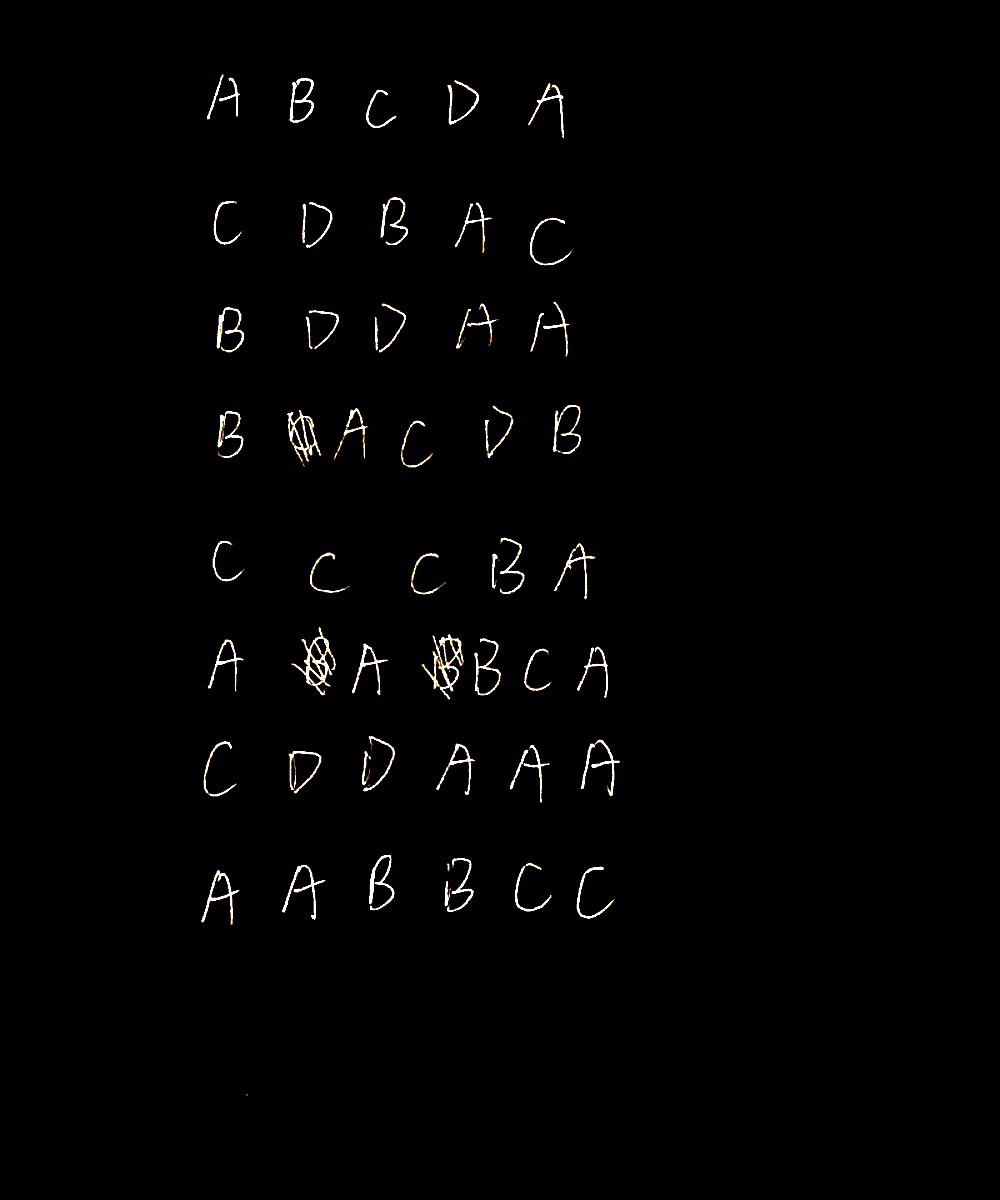 A B C D A
C D B A C
B D D A A
B A C D B
C C C B A
A A B C A
C D D A A A
A A B B C C